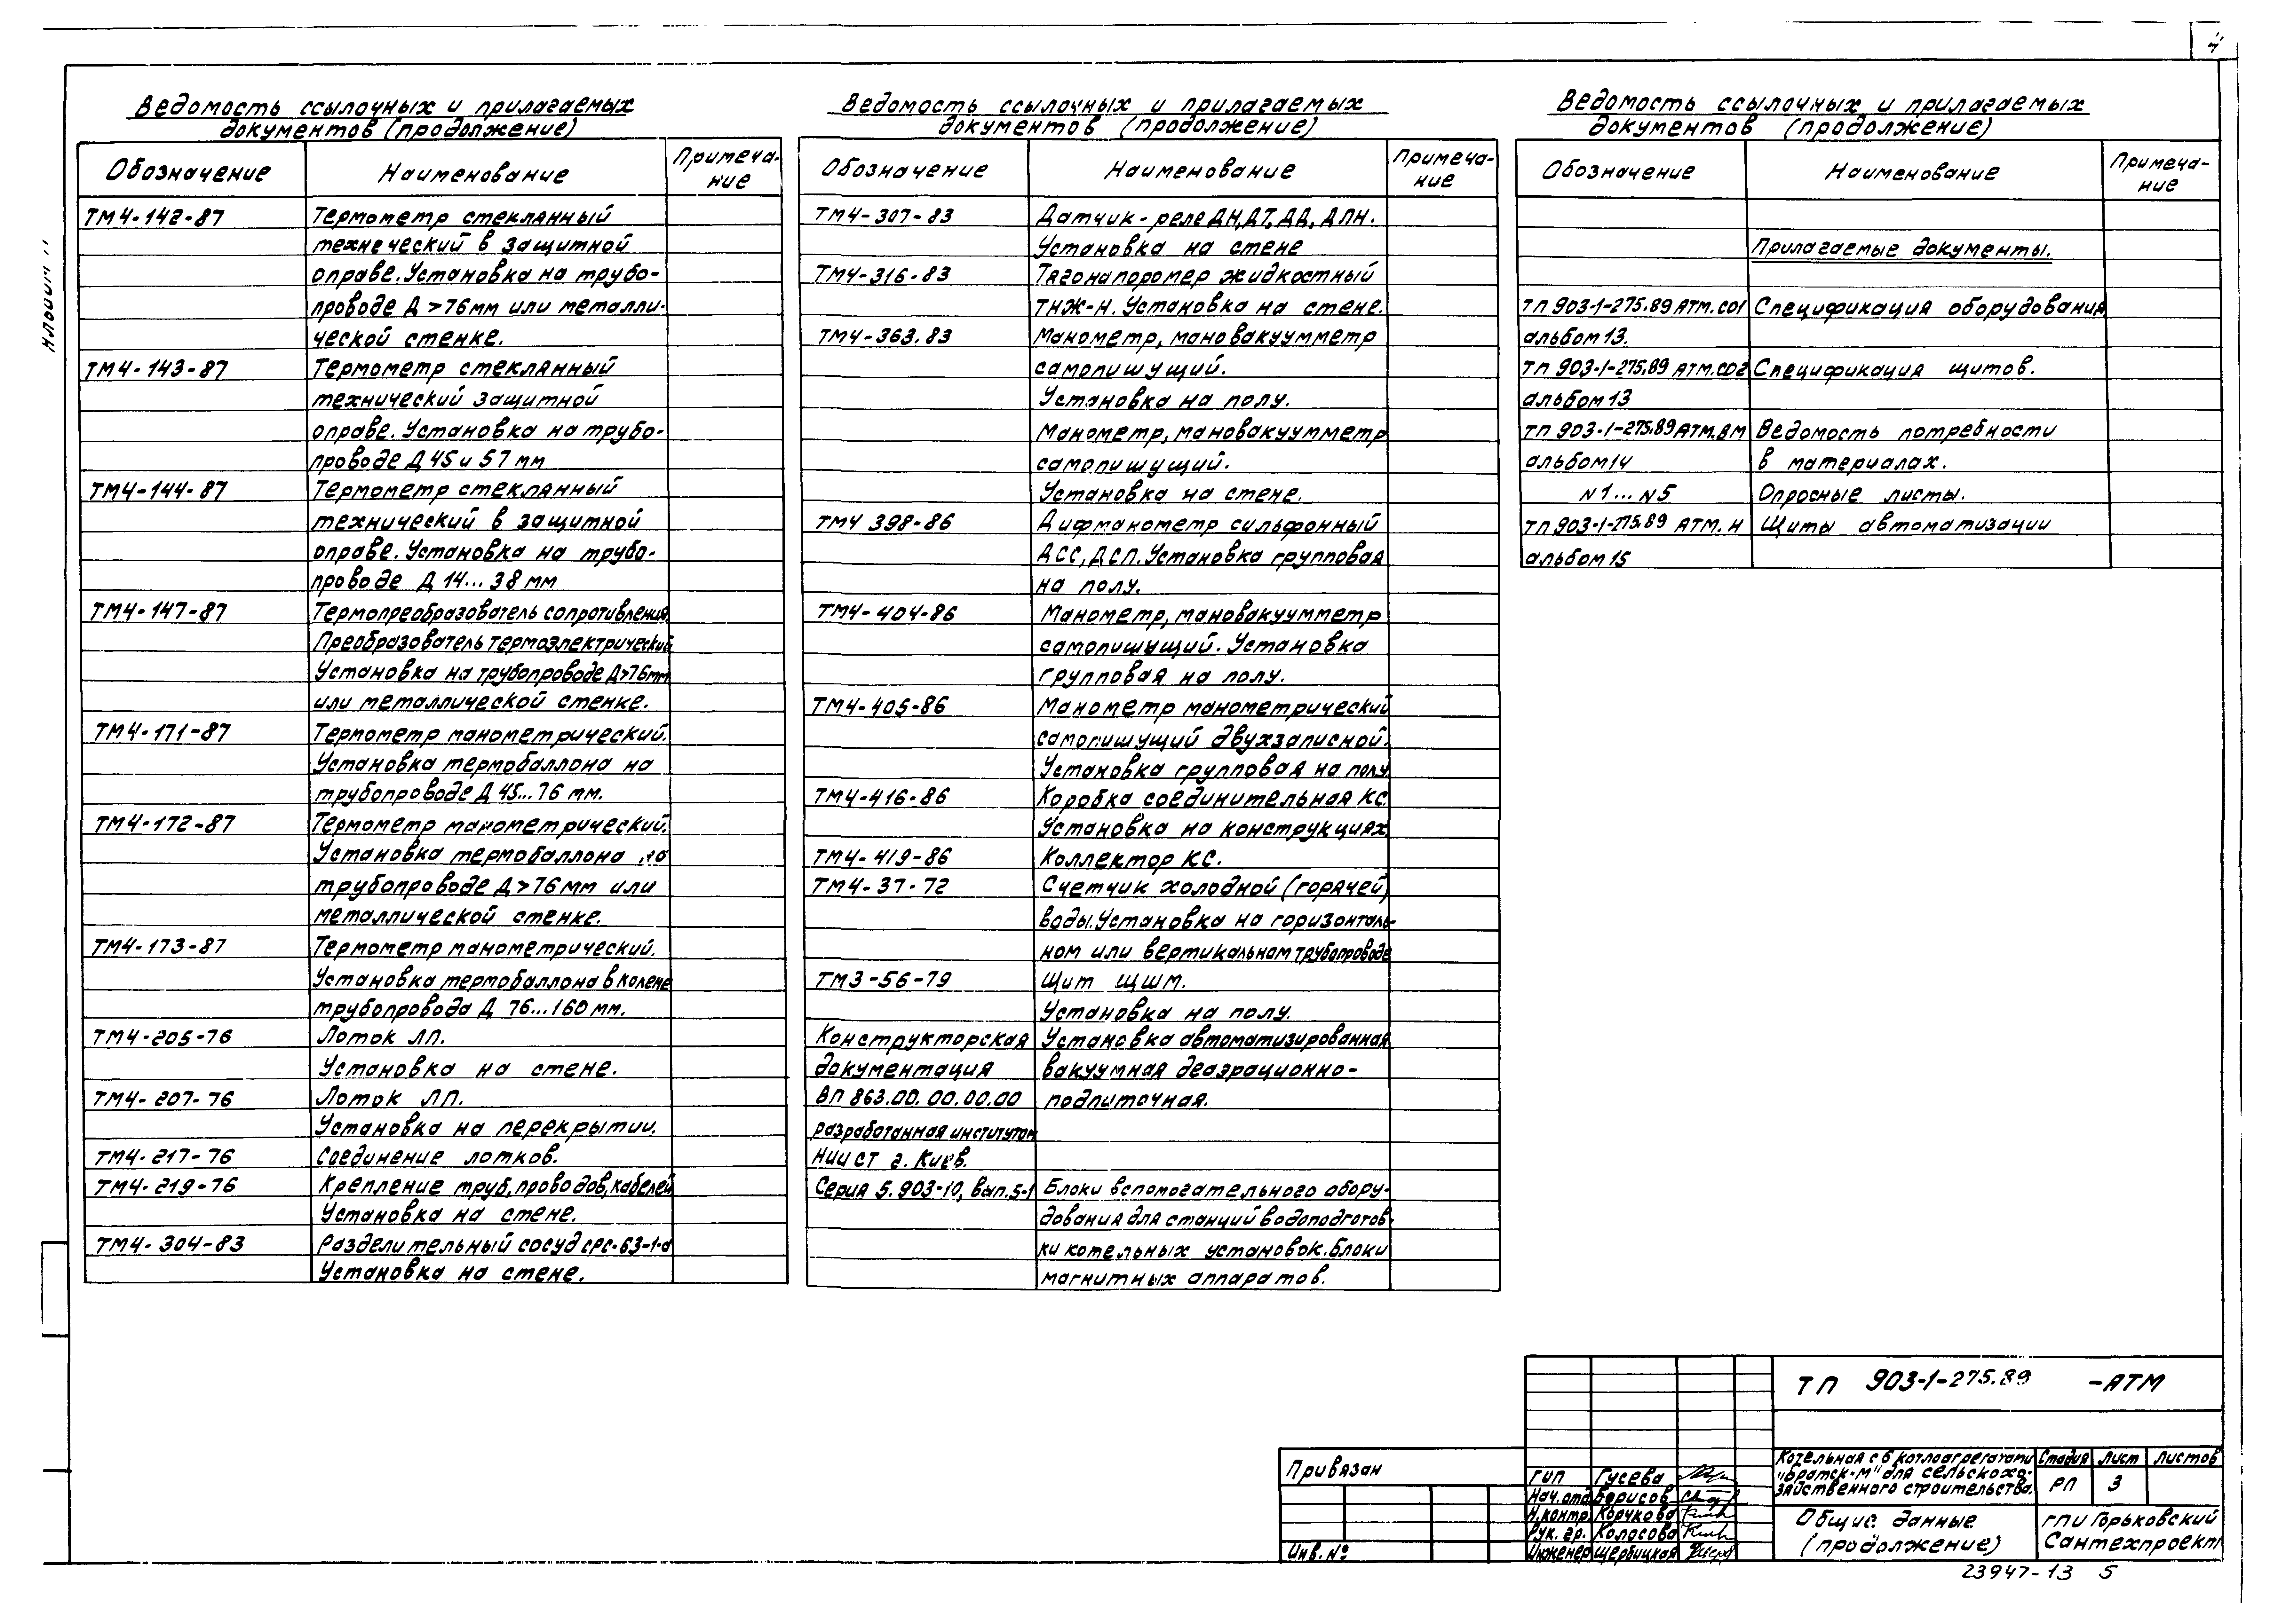 4
Альбом 11
Ведомость ссылочных и прилагаемых
документов (продолжение)
Обозначение Наименование Примеча-
ние
ТМ4-142-87 Термометр стеклянный
технеческий в защитной
оправе. Установка на трубо-
проводе Д >76мм или металли-
ческой стенке.
ТМ4-143-87 Термометр стеклянный
технический защитной
оправе. Установка на трубо-
проводе Д 45 и 57 мм
ТМ4-144-87 Термометр стеклянный
технический в защитной
оправе. Установка на трубо-
проводе Д 14...38 мм
ТМ4-147-87 Термопреобразователь сопротивления.
Преобразователь термоэлектрический.
Установка на трубопроводе Д>76мм
или металлической стенке.
ТМ4-171-87 Термометр манометрический.
Установка термобаллона на
трубопроводе Д 45...76 мм.
ТМ4-172-87 Термометр манометрический.
Установка термобаллона на
трубопроводе Д >76 мм или
металлической стенке.
ТМ4-173-87 Термометр манометрический.
Установка термобаллона в колене
трубопровода Д 76...160 мм.
ТМ4-205-76 Лоток ЛП.
Установка на стене.
ТМ4-207-76 Лоток ЛП.
Установка на перекрытии.
ТМ4-217-76 Соединение лотков.
ТМ4-219-76 Крепление труб, проводов, кабелей
Установка на стене.
ТМ4-304-83 Разделительный сосуд СРС-63-1-а
Установка на стене.
Ведомость ссылочных и прилагаемых
документов (продолжение)
Обозначение Наименование Примеча-
ние
ТМ4-307-83 Датчик-реле ДН, ДТ, ДД, ДПН.
Установка на стене
ТМ4-316-83 Тягонапоромер жидкостный
ТНЖ-Н. Установка на стене.
ТМ4-363.83 Манометр, мановакуумметр
самопишущий.
Установка на полу.
Манометр, мановакуумметр
самопишущий.
Установка на стене.
ТМ4 398-86 Дифманометр сильфонный
ДСС, ДСП. Установка групповая
на полу.
ТМ4-404-86 Манометр, мановакуумметр
самопишущий. Установка
групповая на полу.
ТМ4-405-86 Манометр манометрический
самопишущий двухзаписной.
Установка групповая на полу
ТМ4-416-86 Коробка соединительная КС.
Установка на конструкциях
ТМ4-419-86 Коллектор КС.
ТМ4-37-72 Счетчик холодной (горячей)
воды. Установка на горизонталь-
ном или вертикальном трубопроводе
ТМ3-56-79 Щит ЩШМ.
Установка на полу.
Конструкторская Установка автоматизированная
документация вакуумная деаэрационно-
ВП 863.00.00.00.00 подпиточная.
разработанная институтом
НИИСТ г. Киев.
Серия 5.903-10, вып.5-1 Блоки вспомогательного обору-
дования для станций водоподготов-
ки котельных установок. Блоки
магнитных аппаратов.
Ведомость ссылочных и прилагаемых
документов (продолжение)
Обозначение Наименование Примеча-
ние
Прилагаемые документы.
ТП 903-1-275.89 АТМ.СО1 Спецификация оборудования
альбом 13.
ТП 903-1-275.89 АТМ.СО2 Спецификация щитов.
альбом 13
ТП 903-1-275.89 АТМ.ВМ Ведомость потребности
альбом 14 в материалах.
N1...N5 Опросные листы.
ТП 903-1-275.89 АТМ.Н Щиты автоматизации
альбом 15
ТП 903-1-275.89 -АТМ
Привязан
Инв. №
ГИП Гусева
Нач. отд. Борисов
Н. контр. Корчкова
Рук. гр. Колосова
Инженер Щербицкая
Котельная с 6 котлоагрегатами
"Братск-М" для сельскохо-
зяйственного строительства.
Стадия Лист Листов
РП 3
Общие данные
(продолжение)
ГПИ Горьковский
Сантехпроект
23947-13 5